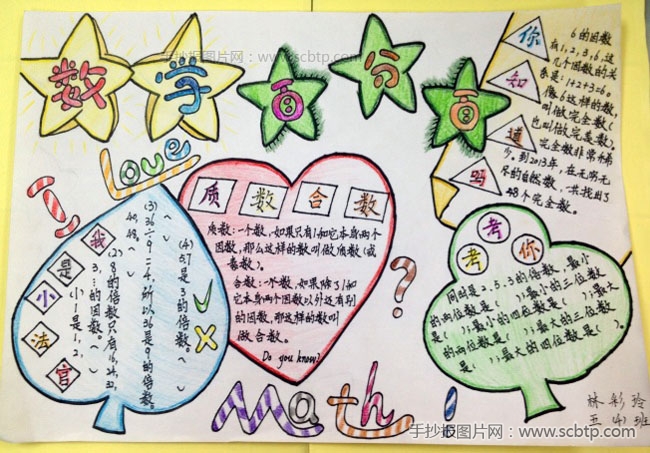 手抄报图片网：www.scbtp.com
数学百分百
你知道吗
6的因数
有1,2,3,6,这
几个因数的关
系是：1+2+3=6。
像6这样的数，
叫做完全数(
也叫做完美数)。
完全数非常稀
少。到2013年，在无穷无
尽的自然数，一共找出了
48个完全数。
I Love
质数合数
质数：一个数，如果只有1和它本身两个
因数，那么这样的数叫做质数(或
素数)。
合数：一个数，如果除了1和
它本身两个因数以外还有别
的因数，那这样的数叫
做合数。
Do you know?
?
我是小法官
(1)1是1,2,
3,…的因数。( )
(2)8的倍数只有16,24,32,
40,48。( )
(3)36÷9=4,所以36是9的倍数。( )
(4)5.7是3的倍数。( )
考考你
同时是2.5.3的倍数，最小
的两位数是( );最小的三位数
的两位数是( );最大
数是( );最大的三位数
是( );最大的四位数是( )。
Math!
林彩玲
五(4)班
手抄报图片网：www.scbtp.com